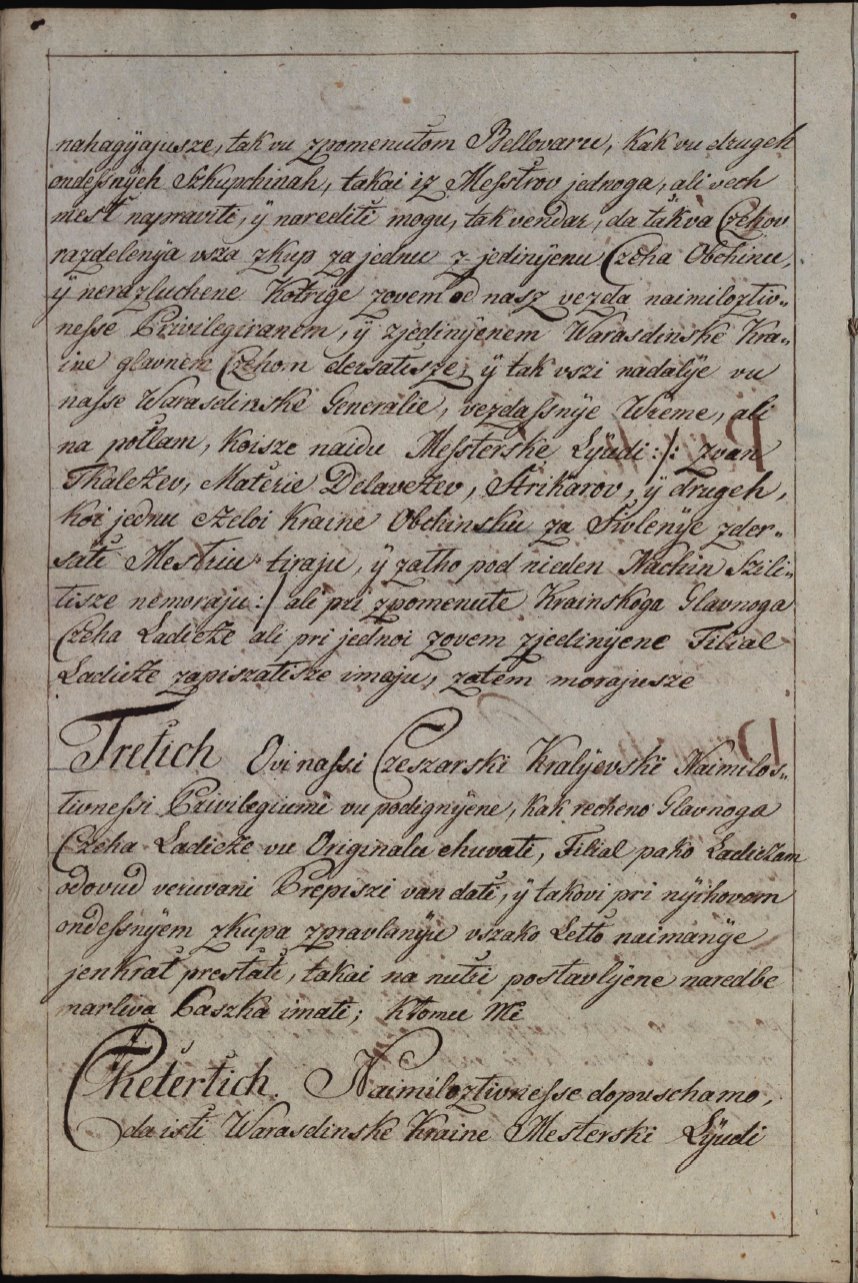 nahagyajusze, tak vu zpomenutom Bellovaru, kak vu drugeh
ondeſsnÿeh Szkupchinah, takai iz Meſstrov jednoga, ali vech
mest napraviti, ÿ narediti mogu, tak vendar, da takva Czehov
razdelenya vsza zkup za jednu z jedinÿenu Czeha Obchinu,
ÿ nerazluchene Kotrige zovem od nasz vezda naimiloztiv-
neſse Privilegiranem, ÿ zjedinÿenem Warasdinske Kra-
ine glavnem Czehom dersatisze, ÿ tak vszi nadalÿe vu
naſse Warasdinski Generalie, vezdaſsnÿe Wreme, ali
na potlam, koisze naidu Meſsterske Lÿudi :/: zvan
Tkalczev, Materie Delavczev, Strikarov, ÿ drugeh,
koi jednu czeloi Kraine Obchinsku za Sivlenÿe zder-
sati Mestriu tiraju, ÿ zatho pod nieden Nachin Szili-
tisze nemoraju :/ ali pri zpomenute Krainskoga Glavnoga
Czeha Ladicze ali pri jednoi zovem zjedinyene Filial
Ladicze zapiszatisze imaju, zatem morajusze
Tretich Ovi naſsi Czeszarski Kralÿevski Naimilos-
tivneſsi Privilegiumi vu podignÿene, kak recheno Glavnoga
Czeha Ladicze vu Originalu chuvati, Filial pako Ladiczam
odovud veruvani Prepiszi van dati, ÿ takovi pri nÿihovem
ondeſsnÿem zkupa zpravlanÿu vszako Letto naimanÿe
jenkrat prestati, takai na nutri postavlÿene naredbe
marliva Paszka imati; Ktomu Mi
Chetertich. Naimiloztivneſse dopuschamo,
da isti Warasdinske Kraine Mesterski Lÿudi